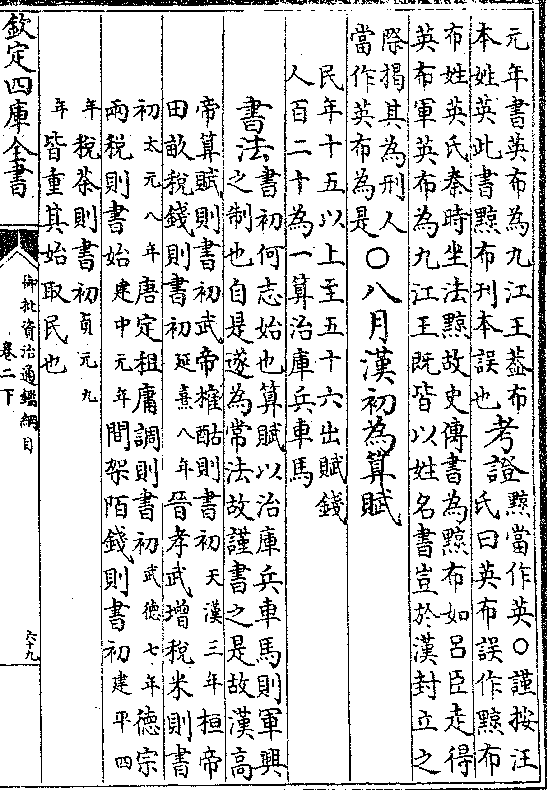 元年書英布為九江王葢布
本姓英此書黥布刊本誤也
考證
黥當作英○謹按汪
氏曰英布誤作黥布
布姓英氏秦時坐法黥故史傳書為黥布如呂臣走得
英布軍英布為九江王既皆以姓名書豈於漢封立之
際揭其為刑人
當作英布為是
○八月漢初為算賦
民年十五以上至五十六出賦錢
人百二十為一算治庫兵車馬
書法
書初何志始也算賦以治庫兵車馬則軍興
之制也自是遂為常法故謹書之是故漢高
帝算賦則書初武帝榷酤則書初天漢三年桓帝
田畝稅錢則書初延熹八年晉孝武增稅米則書
初太元八年唐定租庸調則書初武德七年德宗
兩稅則書始建中元年間架陌錢則書初建平四
年稅茶則書初貞元九
年皆重其始取民也
欽定四庫全書
御批資治通鑑綱目
卷二下
六十九